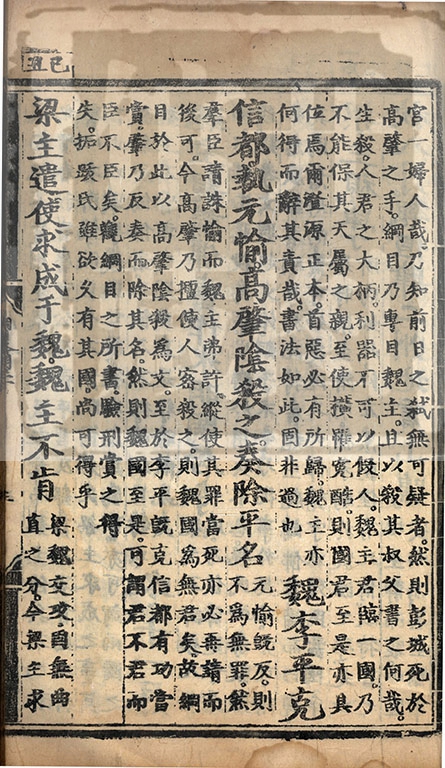 己丑
宫一婦人哉。乃知前日之弑無可疑者。然則彭城死於
高肇之手。綱目乃專目魏主。且以殺其叔父書之何哉。
生殺。人君之大柄。利器不可以假人。魏主君臨一國。乃
不能保其天屬之親。至使橫罹寃酷。則國君至是亦具
位焉爾。澄源正本。首惡必有所歸。魏主亦
何得而辭其責哉。書法如此。因非過也
魏李平克
信都執元愉高肇陰殺之奏除平名
元愉旣反。則
不爲無罪。然
羣臣請誅愉而魏主弗許。縱使其罪當死。亦必再請而
後可。今高肇乃擅使人密殺之。則魏國爲無君矣。故綱
目於此以高肇陰殺爲文。至於李平旣克信都有功當
賞。肇乃反奏而除其名。然則魏國至是。可謂君不君而
臣不臣矣。觀綱目之所書驗刑賞之得
失。拓跋氏雖欲久有其國。尚可得乎
梁主遣使求成于魏。魏主不肯
梁魏交攻。固無曲
直之分。今梁主求